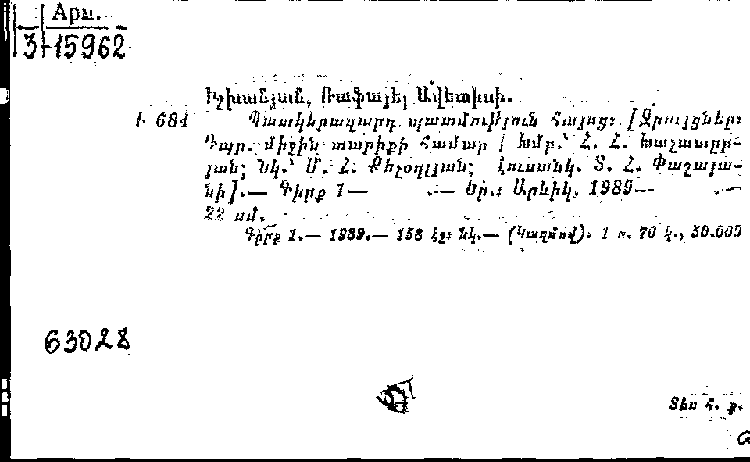 Арм.
3-15962
Իշխանյան, Ռաֆայել Ավետիսի.
Ի 684 Պատկերազարդ պատմություն Հայոց: [Զրույցներ:
Դպր. միջին տարիքի համար / Խմբ.՝ Հ. Հ. Խաչատրյան;
Նկ.՝ Մ. Հ. Լուսանկ. Տ. Հ.
Գիրք 1— .— Եր.: Արևիկ, 1989— .—
22 սմ.
Գիրք 1.— 1989.— 158 էջ: նկ.— (Կազմով). 1 ռ. 70 կ., 50.000
63028
Տես հ. ք.